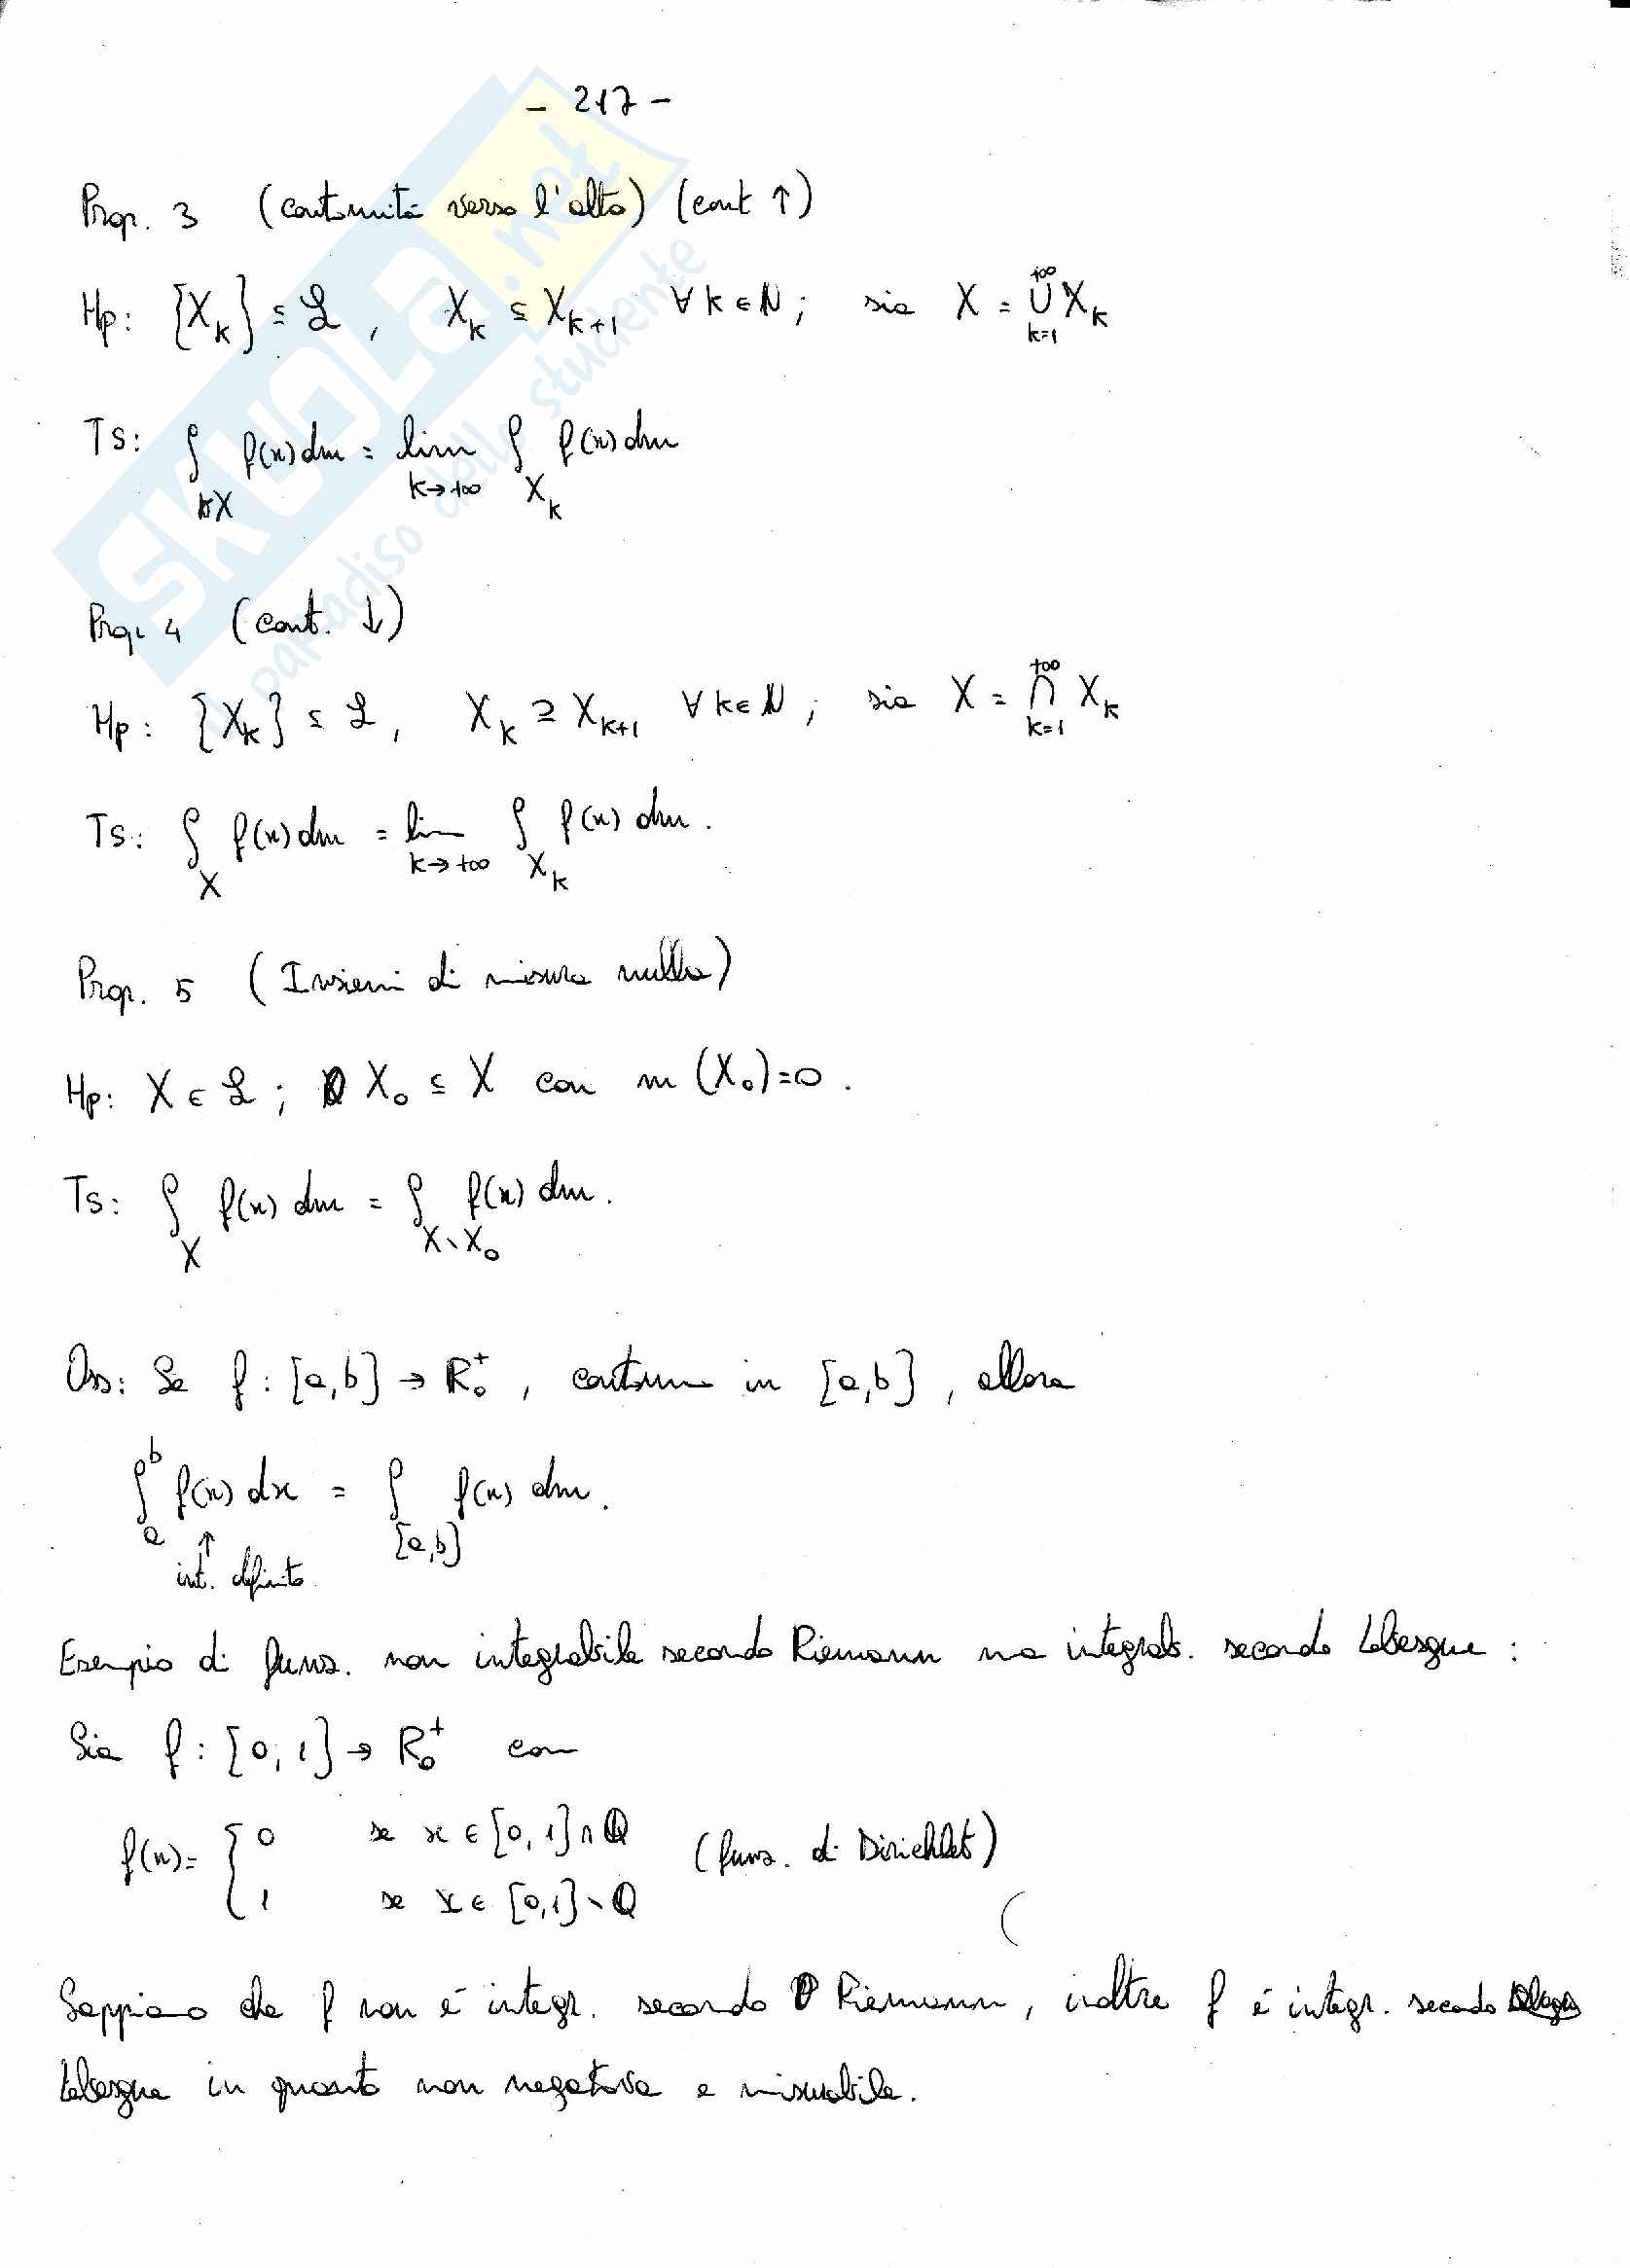 - 217 -
Prop. 3 (continuità verso l'alto) (cont ↑)
Hp: {X_k} ⊆ ℒ, X_k ⊆ X_{k+1} ∀ k ∈ N; sia X = ∪_{k=1}^{+∞} X_k
Ts: ∫_X f(x) dm = lim_{k→+∞} ∫_{X_k} f(x) dm
Prop. 4 (cont. ↓)
Hp: {X_k} ⊆ ℒ, X_k ⊇ X_{k+1} ∀ k ∈ N; sia X = ∩_{k=1}^{+∞} X_k
Ts: ∫_X f(x) dm = lim_{k→+∞} ∫_{X_k} f(x) dm.
Prop. 5 (Insiemi di misura nulla)
Hp: X ∈ ℒ; X_0 ⊆ X con m (X_0)=0.
Ts: ∫_X f(x) dm = ∫_{X∖X_0} f(x) dm.
Oss: Se f: [a,b] → R_0^+, continua in [a,b], allora
∫_a^b f(x) dx = ∫_{[a,b]} f(x) dm.
↑
int. definito
Esempio di funz. non integrabile secondo Riemann ma integrab. secondo Lebesgue:
Sia f: [0,1] → R_0^+ con
f(x)= { 0 se x ∈ [0,1] ∩ Q (funz. di Dirichlet)
1 se x ∈ [0,1] ∖ Q
(
Sappiamo che f non è integr. secondo Riemann, inoltre f è integr. secondo
Lebesgue in quanto non negativa e misurabile.
SKUOLA.net
il paradiso dello studente